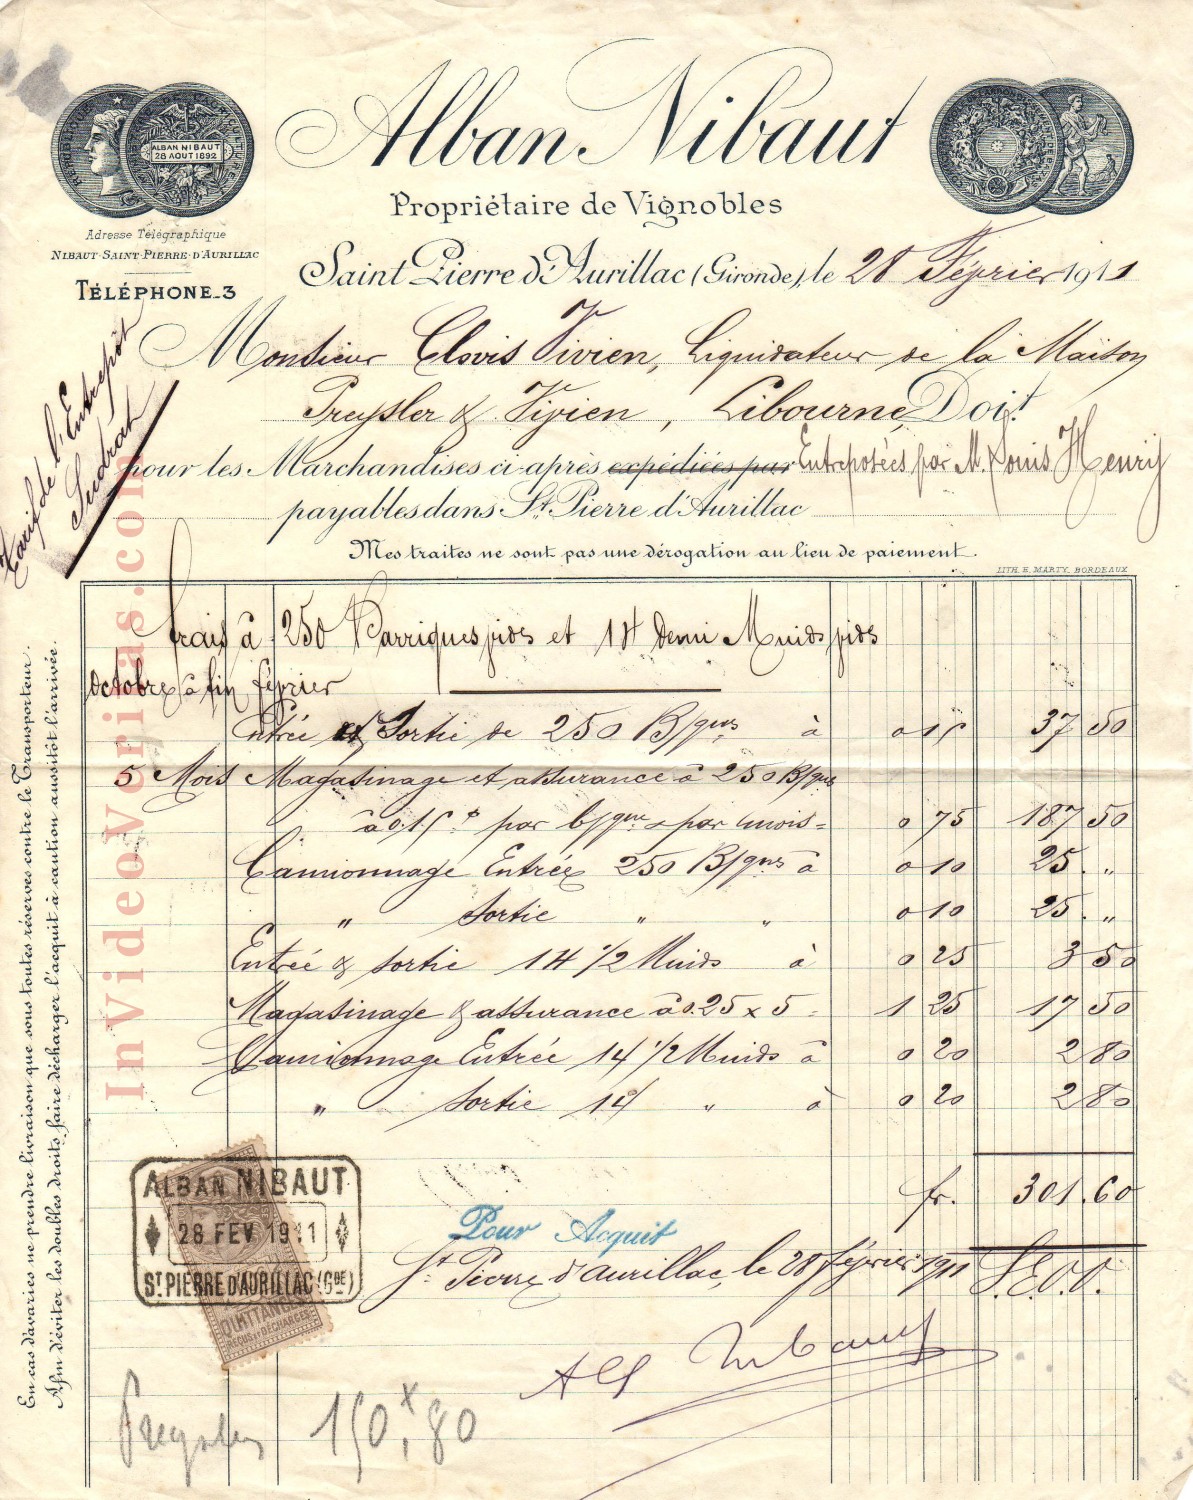 Alban Nibaut
Propriétaire de Vignobles
ALBAN NIBAUT
28 AOUT 1892
Adresse Télégraphique
NIBAUT-SAINT-PIERRE-D'AURILLAC
TÉLÉPHONE_3
Saint Pierre d'Aurillac (Gironde), le 28 Février 1911
Monsieur Clovis Vivien, Liquidateur de la Maison
Preysler & Vivien, Libourne, Doit
pour les Marchandises ci-après expédiées par Entreposées par M. Louis Henrij
payables dans St. Pierre d'Aurillac
Mes traites ne sont pas une dérogation au lieu de paiement.
LITH. E. MARTY_BORDEAUX
Tarif de l'Entrepôt
Sudrat
frais à 250 Barriques pies et 14 Demi Muids pies
Octobre à fin février
Entrée et Sortie de 250 B/ques à 0 15 37 50
5 Mois Magasinage et assurance à 250 B/ques
à 0.15 par b/que & par mois = 0 75 187 50
Camionnage Entrée 250 B/ques à 0 10 25 "
" Sortie " " 0 10 25 "
Entrée & sortie 14 1/2 Muids à 0 25 3 50
Magasinage & assurance à 0.25 x 5 = 1 25 17 50
Camionnage Entrée 14 1/2 Muids à 0 20 2 80
" Sortie 14 " à 0 20 2 80
fr. 301.60
ALBAN NIBAUT
28 FEV 1911
ST. PIERRE D'AURILLAC (GDE)
QUITTANCES
REÇUS ET DÉCHARGES
Pour Acquit
St. Pierre d'Aurillac, le 28 février 1911 S.E.O.O.
Alb Nibaut
Preysler 150,80
En cas d'avaries ne prendre livraison que sous toutes réserves contre le Transporteur.
Afin d'éviter les doubles droits faire décharger l'acquit à caution aussitôt l'arrivée.
InVideoVeritas.com